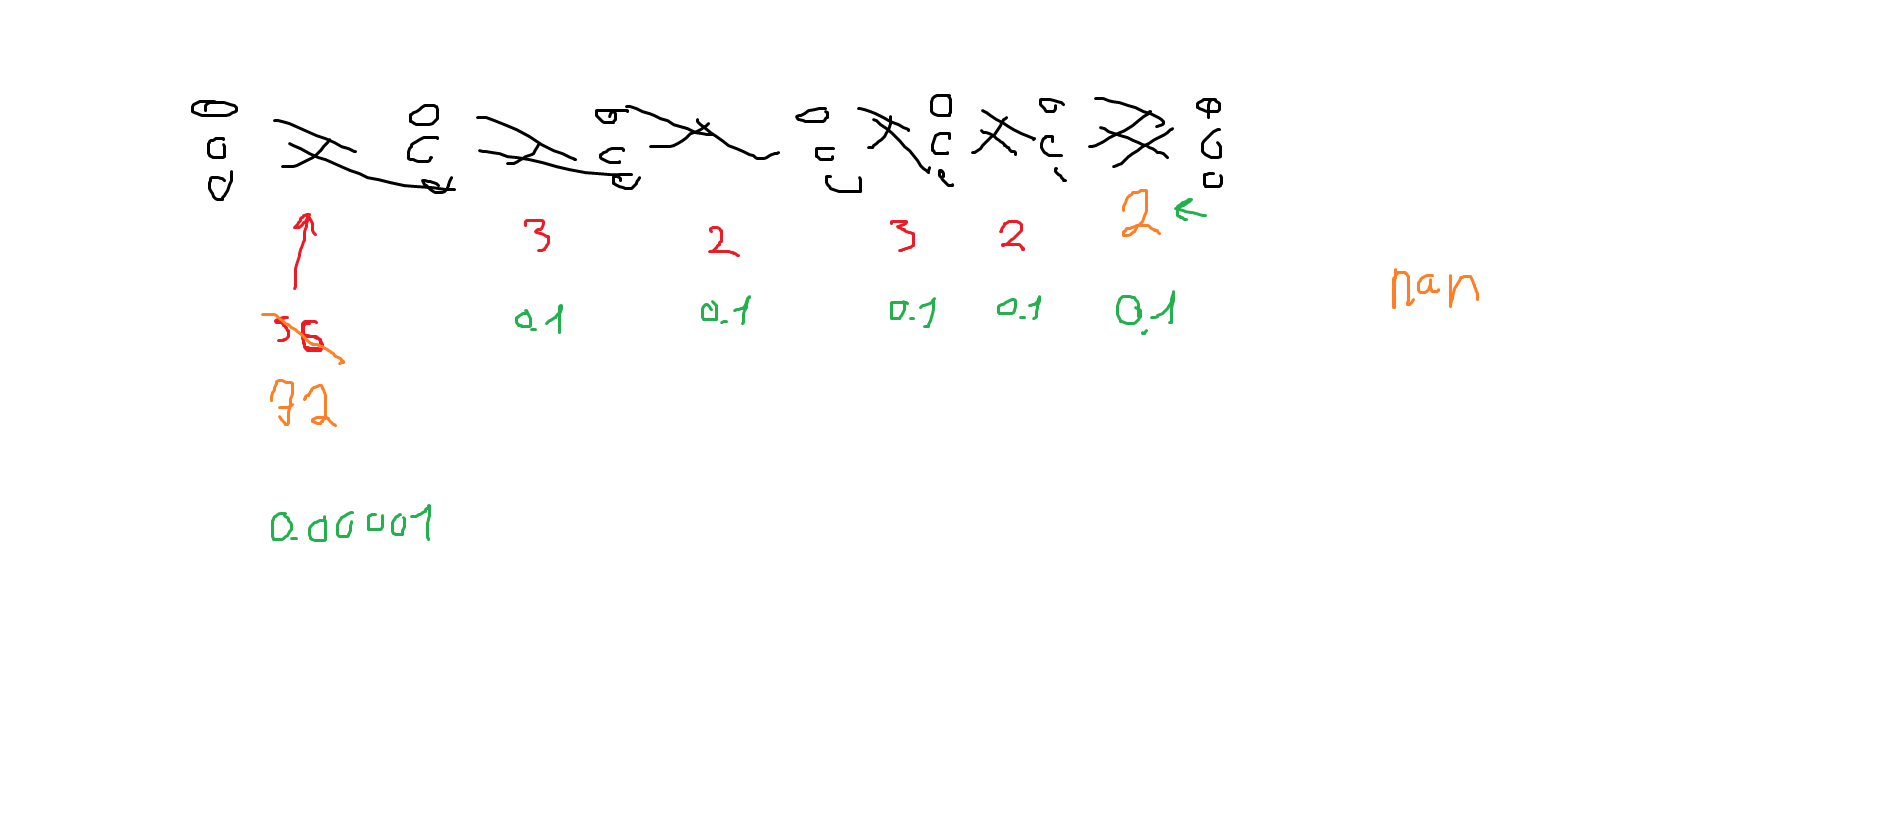 3 2 3 2 2
nan
36
0.1 0.1 0.1 0.1 0.1
72
0.00001